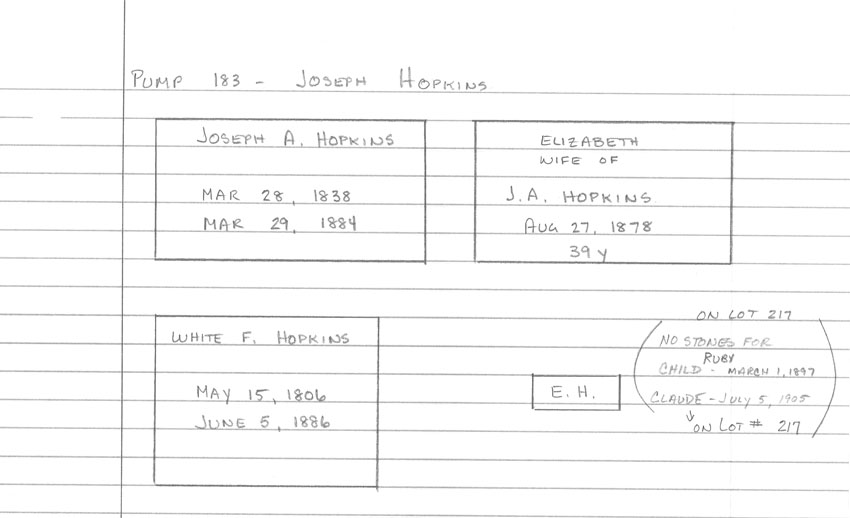 PUMP 183 - JOSEPH HOPKINS
JOSEPH A. HOPKINS
MAR 28, 1838
MAR 29, 1884
ELIZABETH
WIFE OF
J.A. HOPKINS
AUG 27, 1878
39 y
WHITE F. HOPKINS
MAY 15, 1806
JUNE 5, 1886
E. H.
ON LOT 217
(NO STONES FOR
RUBY
CHILD - MARCH 1, 1897
CLAUDE - JULY 5, 1905
↓ ON LOT # 217)